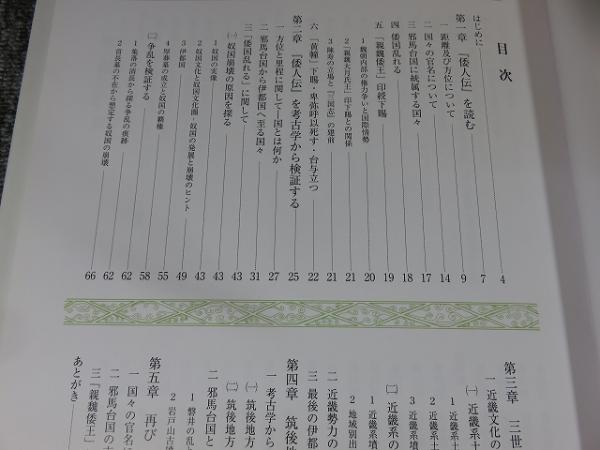 目次
はじめに 4
第一章 『倭人伝』を読む 7
一 距離及び方位について 9
二 国々の官名について 14
三 邪馬台国に統属する国々 17
四 倭国乱れる 18
五 「親魏倭王」印綬下賜 19
1 魏朝内部の権力争いと国際情勢 20
2「親魏大月氏王」印下賜との関係 21
3 陳寿の立場と『三国志』の建前 21
六 「黄幢」下賜・卑弥呼以死す・台与立つ 22
第二章 『倭人伝』を考古学から検証する 25
一 方位と里程に関して―国とは何か 27
二 邪馬台国から伊都国へ至る国々 31
三「倭国乱れる」に関して 43
㈠ 奴国崩壊の原因を探る 43
1 奴国の実像 43
2 奴国文化と奴国文化圏-奴国の発展と崩壊のヒント 49
3 伊都国 55
4 厚葬墓の成立と奴国の覇権 58
㈡ 争乱を検証する 62
1 集落の消長から探る争乱の痕跡 62
2 首長墓の不在から想定する奴国の崩壊 66
第三章 三世
一 近畿文化の
㈠ 近畿系土
1 近畿系土
2 近畿系土
3 近畿系
㈡ 近畿系の
1 近畿系墳
2 地域別出
二 近畿勢力の
三 最後の伊都
第四章 筑後地
一 考古学から
㈠ 筑後地方
㈡ 筑後地方
二 邪馬台国と
1 磐井の乱と
2 岩戸山古墳
第五章 再び
一 国々の官名に
二 邪馬台国の
三「親魏倭王」
あとがき